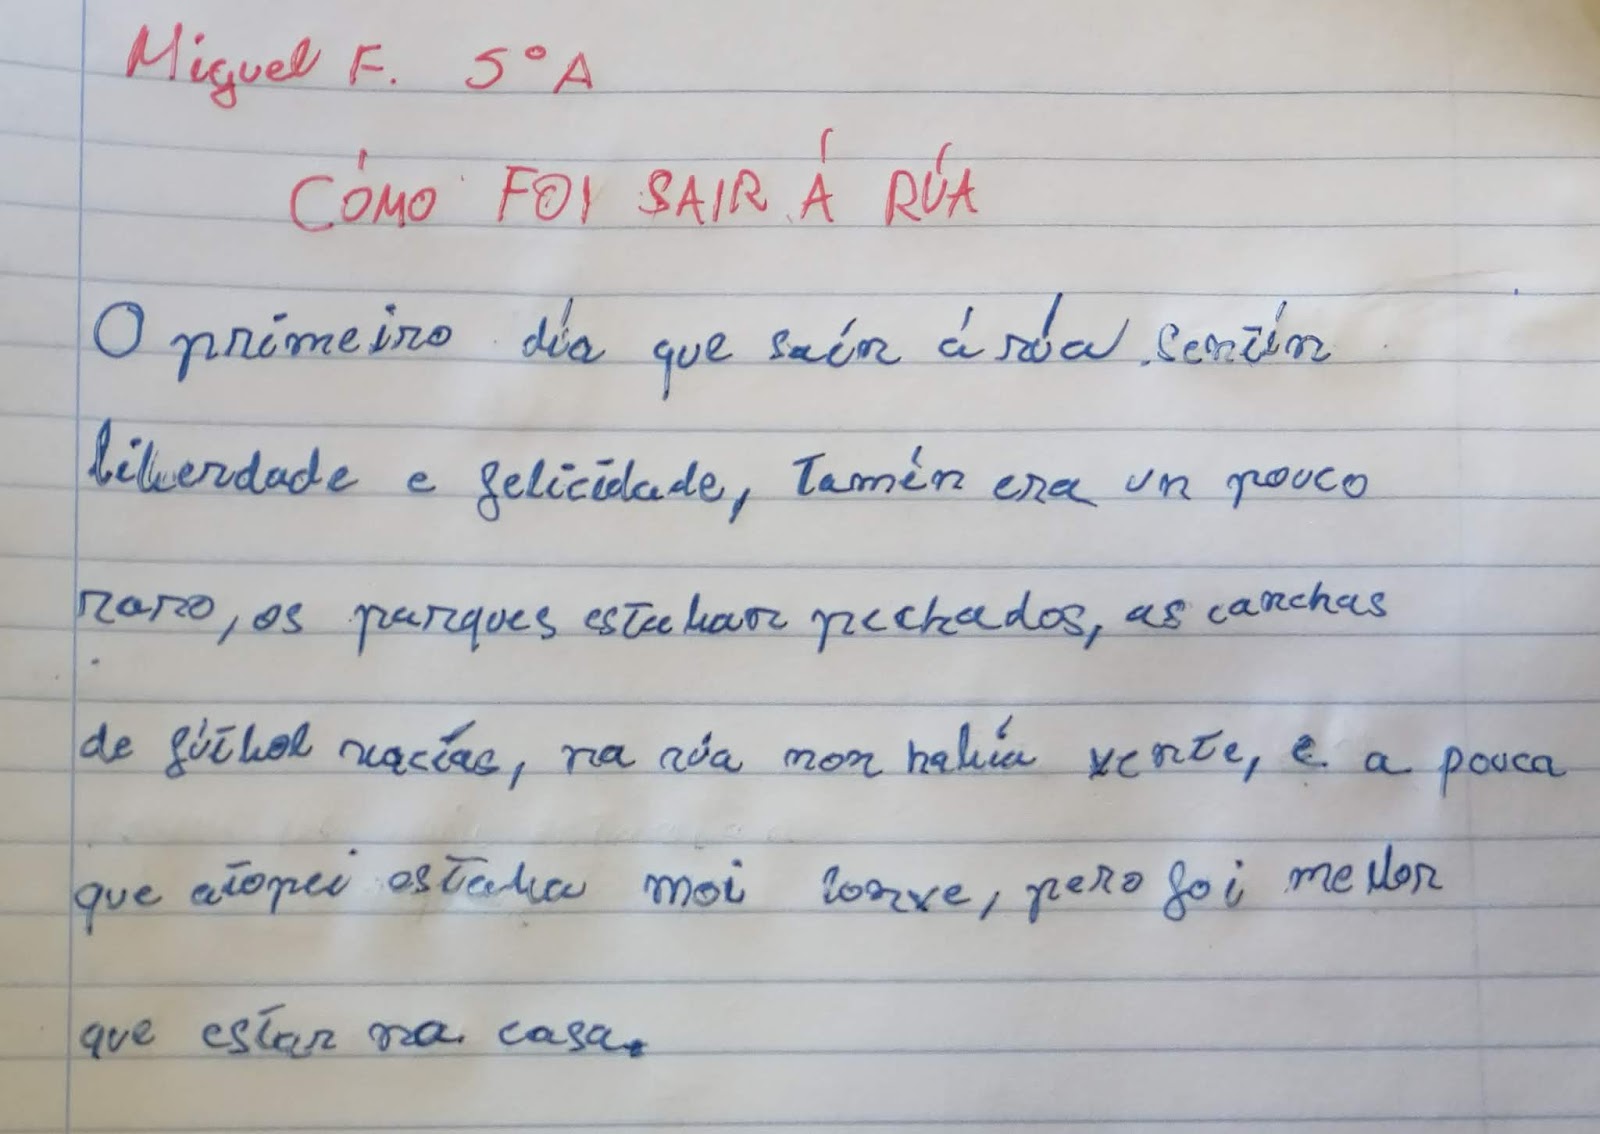 Miguel F. 5º A
CÓMO FOI SAIR Á RÚA
O primeiro día que saín á rúa sentín
liberdade e felicidade, tamén era un pouco
raro, os parques estaban pechados, as canchas
de fútbol vacías, na rúa non había xente, e a pouca
que atopei estaba moi lonxe, pero foi mellor
que estar na casa.